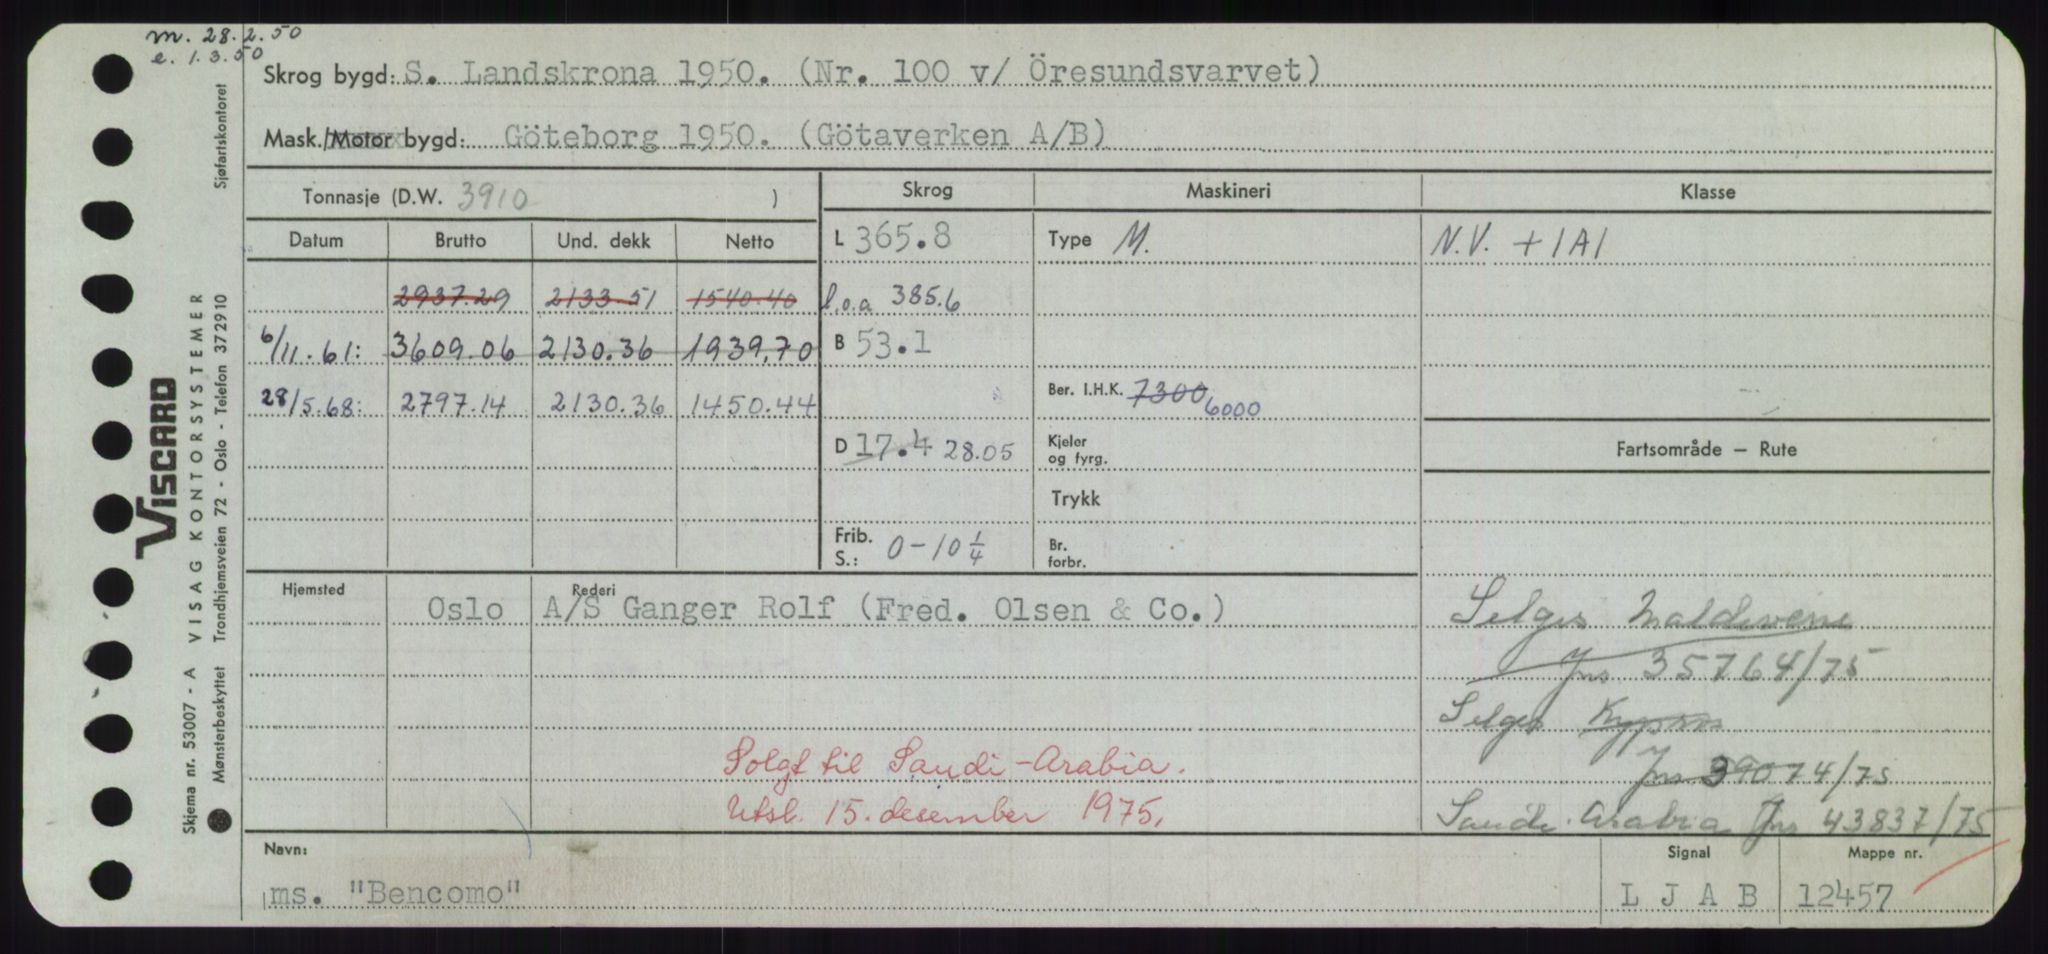 m. 28.2.50
e. 1.3.50
Skrog bygd: S. Landskrona 1950. (Nr. 100 v/ Öresundsvarvet)
Mask./Motor bygd: Göteborg 1950. (Götaverken A/B)
Tonnasje (D.W. 3910 ) Skrog Maskineri Klasse
Datum Brutto Und. dekk Netto L 365.8 Type M. N.V. +1A1
2937.29 2133.51 1540.40 l.o.a 385.6
6/11.61: 3609.06 2130.36 1939,70 B 53.1
28/5.68: 2797.14 2130.36 1450.44 Ber. I.H.K. 7300 6000
D 17.4 28.05 Kjeler og fyrg. Fartsområde – Rute
Trykk
Frib. S.: 0-10 1/4 Br. forbr.
Hjemsted Rederi
Oslo A/S Ganger Rolf (Fred. Olsen & Co.)
Selges Maldivene
Jnr 35764/75
Selges Kypros
Jnr 39074/75
Solgt til Saudi-Arabia.
Utsl. 15. desember 1975.
Saudi-Arabia Jnr 43837/75
Navn: Signal Mappe nr.
ms. "Bencomo" L J A B 12457
Skjema nr. 53007 - A VISAG KONTORSYSTEMER
VISCARD
Mønsterbeskyttet Trondhjemsveien 72 - Oslo - Telefon 372910
Sjøfartskontoret